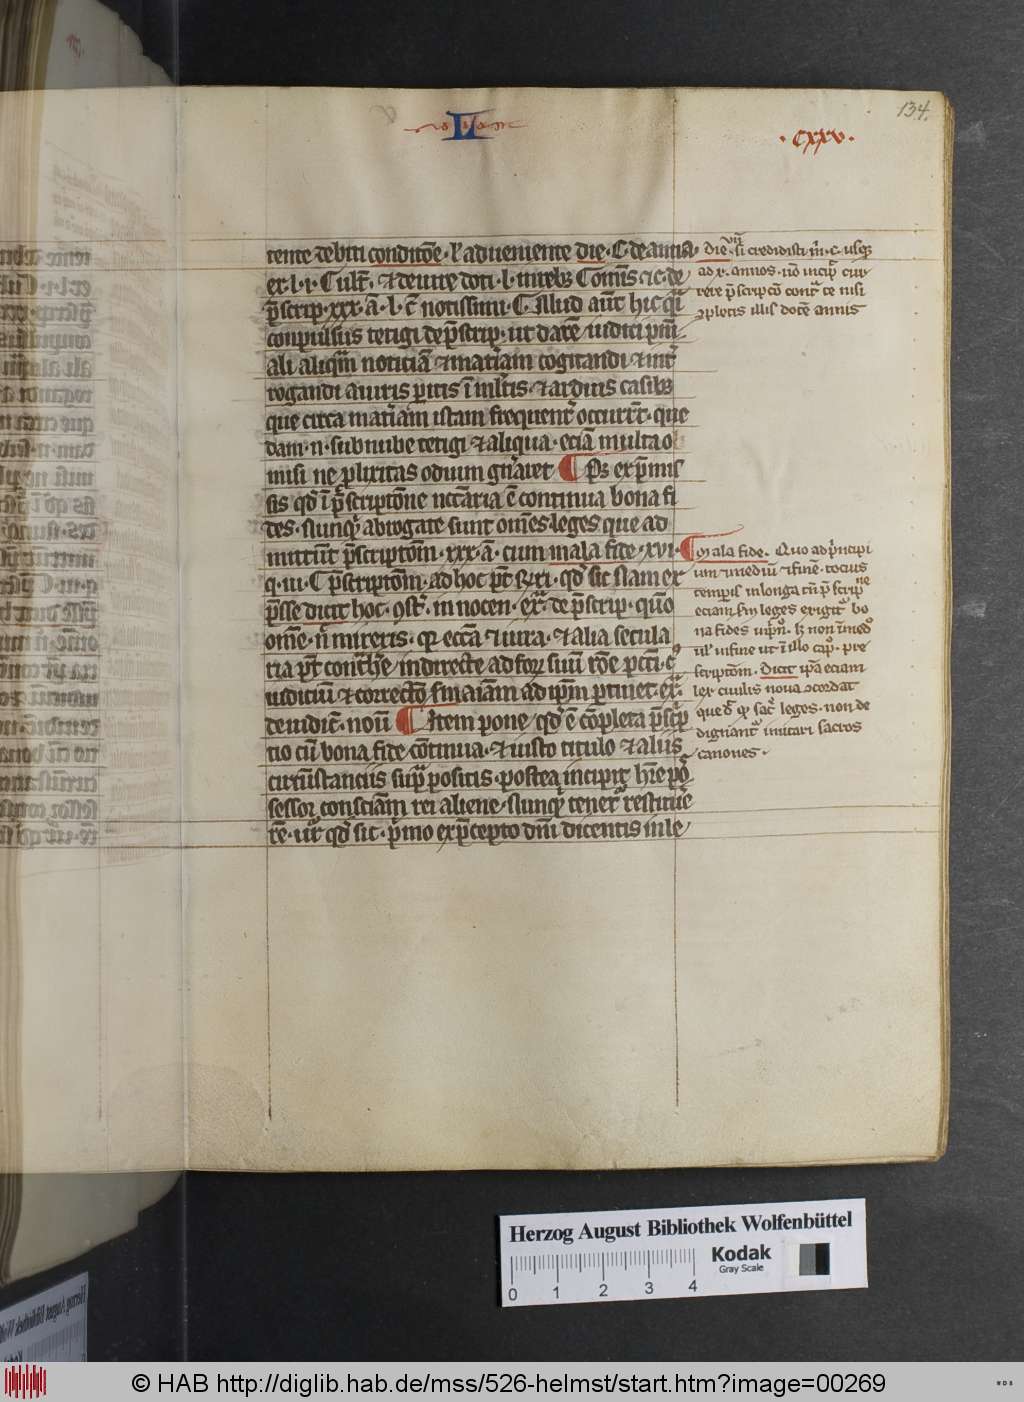 134.
L
· cxxv ·
tente debiti conditōe · ł adveniente die · C. de annā ·
ex · l · i · C ult̄ · ⁊ de iure doti · l · in rebꝫ Comīs ⁊ c · de
p̄scrip · xxx · ā · l · c̄ notissimi · C. Illud aūt hic qͣi
conpulsus tetigi de p̄scrip · ut datē iudici pmī
ali aliqͣm noticiā ⁊ mat̄iam cogitandi ⁊ int̄
rogandi a iuris peritis ī mltis · ⁊ arduis casibꝫ
que circa mat̄iam istam frequent̄ occurrūt · que
dam · n · sub nube tetigi ⁊ aliqua · eciā multa o
misi ne plixitas odium gn̄aret ¶ Pꝫ ex p̄mis
sis qd̄ ī p̄scriptōne nccāria ē continua bona fi
des · Nunqͥ abrogate sunt om̄es leges que ad
mittūt p̄scriptōm · xxx · ā · cum mala fide · xvi ·
q · iii · C p̄scriptōm · ad hoc pt̄ · qd̄ sit nam ex
p̄sse dicit hoc · ꝯst̄ · in nocen · ex̄ · de p̄scrip · qm̄o
om̄e · n̄ mireris · qꝛ ecc̄a ⁊ iura · ⁊ alia secula
ria pt̄ con̄he indirecte ad forꝝ suū rōe pcc̄i · cꝰ
iudiciū ⁊ correctō sm̄ aīam ad ipm̄ ptinet · ex̄ ·
de iudic̄ · noūi ¶ Item pone qd̄ ē cōpleta p̄scp
tio cū bona fide cōtinua · ⁊ iusto titulo ⁊ aliis
circūstanciis supͣ positis · postea incipit hr̄e pos
sessor consciam rei aliene · Nunqͥ tenet̄ restitue
re · ut̄ qd̄ sic · pͥmo ex p̄cepto dn̄i dicentis in le
die · si credidisti m̄ · c · usqꝫ
ad x · annos · nō incip̄ cur
rere p̄scripcō cont̄ te nisi
ꝯpletis illis docē annis
Mala fide · Quo ad pͥncipi
um ⁊ mediū ⁊ finē · tocius
temporis in longa tn̄ p̄scripne
eciam sm̄ leges exigit̄ bo
na fides īpn̄o · ł non ī medō
ul̄ in fine ut ī illo capo · pre
scriptōm · Dicit ip̄a eciam
lex civilis nova ꝯcordat
qued̄ qꝛ sac̄ leges · non de
dignant̄ imitari sacros
canones ·
Herzog August Bibliothek Wolfenbüttel
Kodak
Gray Scale
0 1 2 3 4
© HAB http://diglib.hab.de/mss/526-helmst/start.htm?image=00269